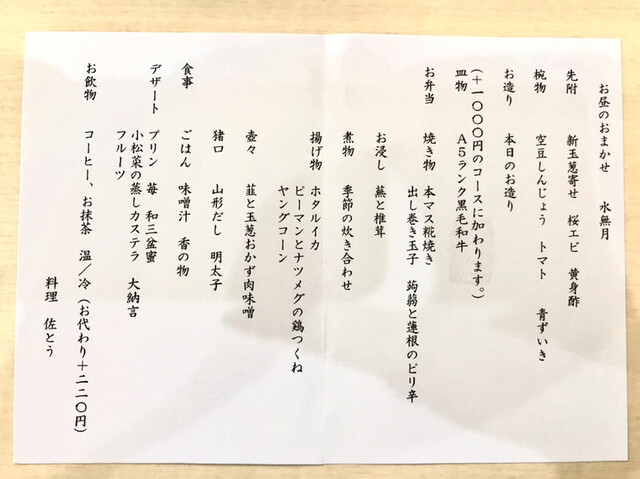 お昼のおまかせ　水無月
先附　新玉葱寄せ　桜エビ　黄身酢
椀物　空豆しんじょう　トマト　青ずいき
お造り　本日のお造り
(＋一〇〇〇円のコースに加わります。)
皿物　A5ランク黒毛和牛
お弁当　焼き物　本マス糀焼き
出し巻き玉子　蒟蒻と蓮根のピリ辛
お浸し　蕪と椎茸
煮物　季節の炊き合わせ
揚げ物　ホタルイカ
ピーマンとナツメグの鶏つくね
ヤングコーン
壺々　韮と玉葱おかず肉味噌
猪口　山形だし　明太子
食事　ごはん　味噌汁　香の物
デザート　プリン　苺　和三盆蜜
小松菜の蒸しカステラ　大納言
フルーツ
お飲物　コーヒー、お抹茶　温／冷（お代わり＋二二〇円）
料理　佐とう